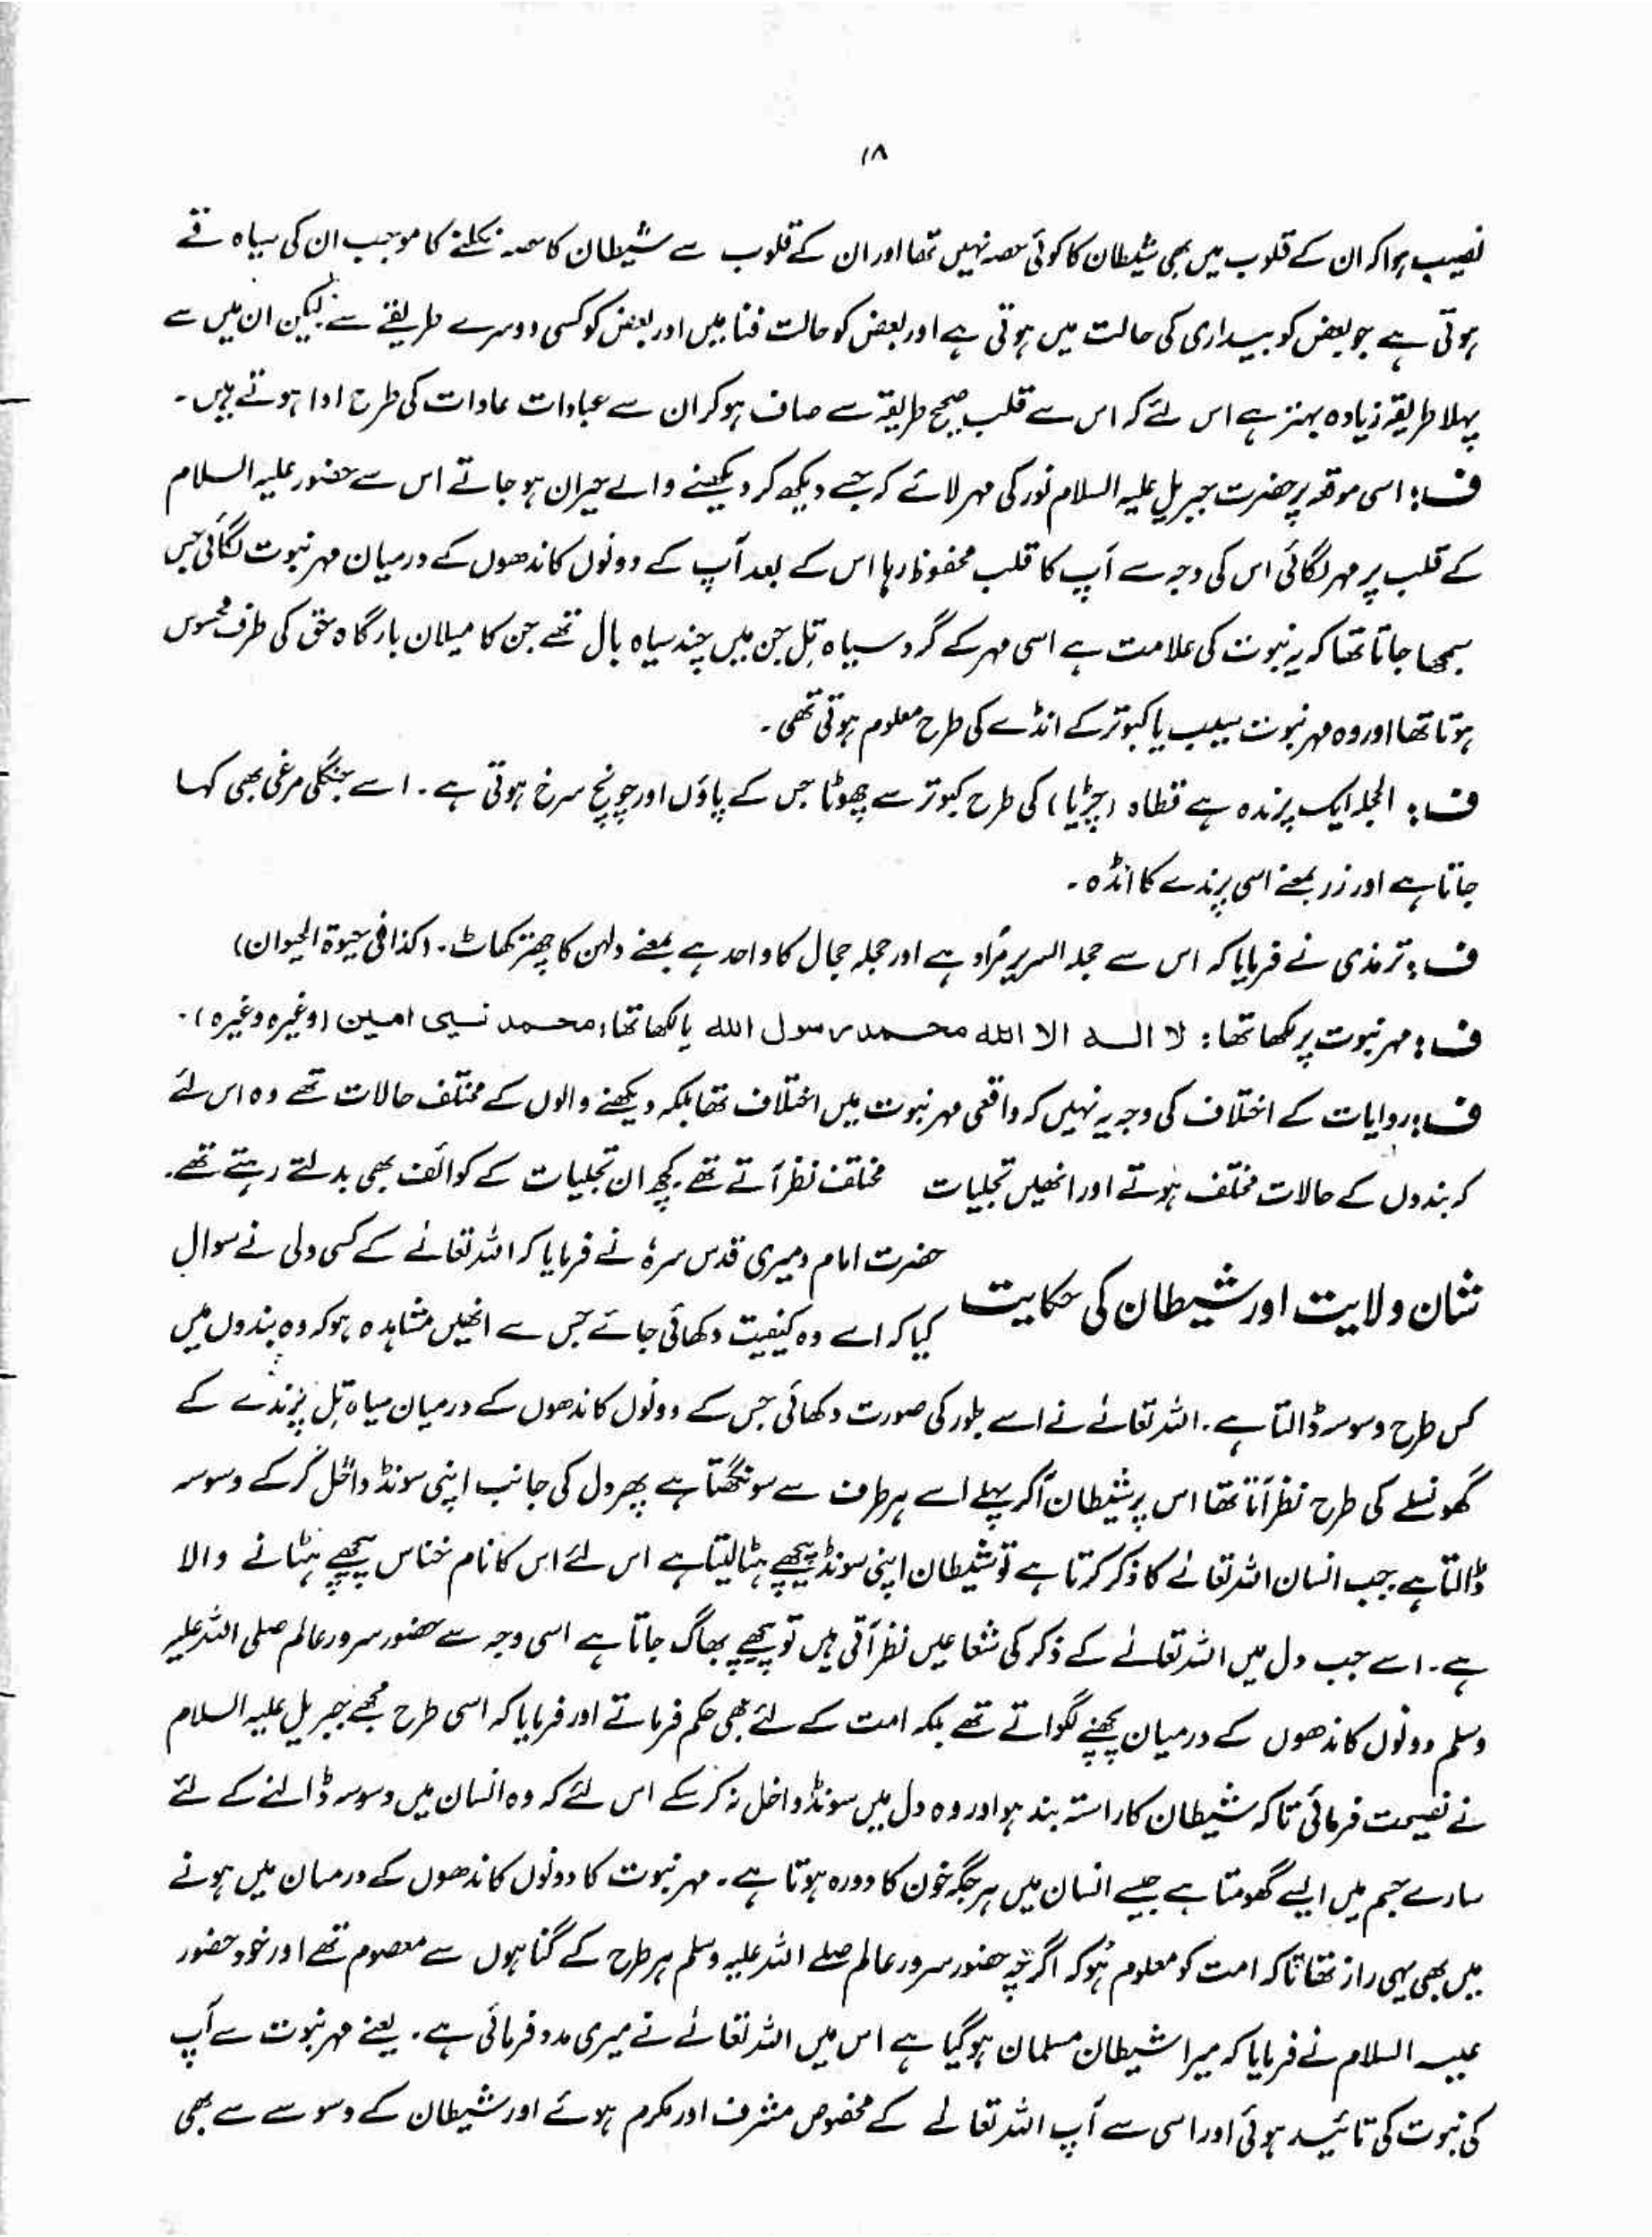 ۱۸
نصیب ہوا کہ ان کے قلوب میں بھی شیطان کا کوئی حصہ نہیں تھا اور ان کے قلوب سے شیطان کا حصہ نکلنے کا موجب ان کی سیاہ قے
ہوتی ہے جو بعض کو بیداری کی حالت میں ہوتی ہے اور بعض کو حالت فنا میں اور بعض کو کسی دوسرے طریقے سے لیکن ان میں سے
پہلا طریقہ زیادہ بہتر ہے اس لئے کہ اس سے قلب صحیح طریقہ سے صاف ہو کر ان سے عبادات عادات کی طرح ادا ہوتے ہیں۔
ف: اسی موقعہ پر حضرت جبریل علیہ السلام نور کی مہر لائے کہ جسے دیکھ کر دیکھنے والے حیران ہو جاتے اس سے حضور علیہ السلام
کے قلب پر مہر لگائی اس کی وجہ سے آپ کا قلب محفوظ رہا اس کے بعد آپ کے دونوں کاندھوں کے درمیان مہر نبوت لگائی جس
سمجھا جاتا تھا کہ یہ نبوت کی علامت ہے اسی مہر کے گرد سیاہ تل جن میں چند سیاہ بال تھے جن کا میلان بارگاہ حق کی طرف محسوس
ہوتا تھا اور وہ مہر نبوت سیب یا کبوتر کے انڈے کی طرح معلوم ہوتی تھی۔
ف: الحجلہ ایک پرندہ ہے قطاہ (چڑیا) کی طرح کبوتر سے چھوٹا جس کے پاؤں اور چونچ سرخ ہوتی ہے۔ اسے جنگلی مرغی بھی کہا
جاتا ہے اور زر بمعنے اسی پرندے کا انڈہ۔
ف: ترمذی نے فرمایا کہ اس سے حجلہ السریر مراد ہے اور حجلہ حجال کا واحد ہے بمعنے دلہن کا چھتر کھاٹ۔ (کذا فی حیوۃ الحیوان)
ف: مہر نبوت پر لکھا تھا: لا الہ الا اللہ محمد رسول اللہ یا لکھا تھا: محمد نبی امین (وغیرہ وغیرہ)۔
ف: روایات کے اختلاف کی وجہ یہ نہیں کہ واقعی مہر نبوت میں اختلاف تھا بلکہ دیکھنے والوں کے مختلف حالات تھے وہ اس لئے
کہ بندوں کے حالات مختلف ہوتے اور انھیں تجلیات مختلف نظر آتے تھے۔ کچھ ان تجلیات کے کوائف بھی بدلتے رہتے تھے۔
شان ولایت اور شیطان کی حکایت
حضرت امام دمیری قدس سرہٗ نے فرمایا کہ اللہ تعالیٰ کے کسی ولی نے سوال
کیا کہ اسے وہ کیفیت دکھائی جائے جس سے انھیں مشاہدہ ہو کہ وہ بندوں میں
کس طرح وسوسہ ڈالتا ہے۔ اللہ تعالیٰ نے اسے بلور کی صورت دکھائی جس کے دونوں کاندھوں کے درمیان سیاہ تل پرندے کے
گھونسلے کی طرح نظر آتا تھا اس پر شیطان آ کر پہلے اسے ہر طرف سے سونگھتا ہے پھر دل کی جانب اپنی سونڈ داخل کر کے وسوسہ
ڈالتا ہے جب انسان اللہ تعالیٰ کا ذکر کرتا ہے تو شیطان اپنی سونڈ پیچھے ہٹا لیتا ہے اس لئے اس کا نام خناس پیچھے ہٹانے والا
ہے۔ اسے جب دل میں اللہ تعالیٰ کے ذکر کی شعاعیں نظر آتی ہیں تو پیچھے بھاگ جاتا ہے اسی وجہ سے حضور سرور عالم صلی اللہ علیہ
وسلم دونوں کاندھوں کے درمیان پچھنے لگواتے تھے بلکہ امت کے لئے بھی حکم فرماتے اور فرمایا کہ اسی طرح مجھے جبریل علیہ السلام
نے نصیحت فرمائی تاکہ شیطان کا راستہ بند ہو اور وہ دل میں سونڈ داخل نہ کر سکے اس لئے کہ وہ انسان میں وسوسہ ڈالنے کے لئے
سارے جسم میں ایسے گھومتا ہے جیسے انسان میں ہر جگہ خون کا دورہ ہوتا ہے۔ مہر نبوت کا دونوں کاندھوں کے درمیان میں ہونے
میں بھی یہی راز تھا تاکہ امت کو معلوم ہو کہ اگرچہ حضور سرور عالم صلے اللہ علیہ وسلم ہر طرح کے گناہوں سے معصوم تھے اور خود حضور
علیہ السلام نے فرمایا کہ میرا شیطان مسلمان ہو گیا ہے اس میں اللہ تعالیٰ نے میری مدد فرمائی ہے۔ یعنے مہر نبوت سے آپ
کی نبوت کی تائید ہوئی اور اسی سے آپ اللہ تعالے کے مخصوص مشرف اور مکرم ہوئے اور شیطان کے وسوسے سے بھی